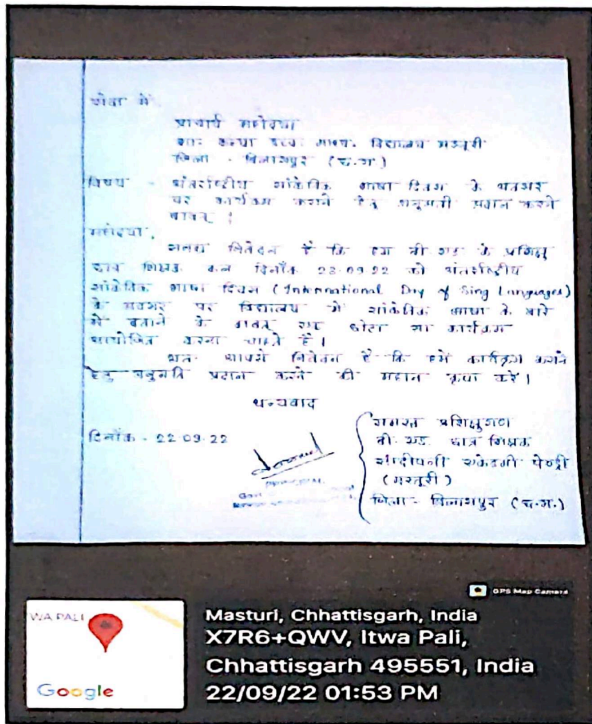 सेवा में
प्राचार्य महोदया
शास. कन्या उच्च. माध्य. विद्यालय मस्तूरी
जिला - बिलासपुर (छ.ग)
विषय - अंतर्राष्ट्रीय सांकेतिक भाषा दिवस के अवसर
पर कार्यक्रम कराने हेतु अनुमती प्रदान करने
बाबत् ।
महोदया,
सनम्र निवेदन है कि हम बी.एड के प्रशिक्षु
छात्र शिक्षक कल दिनाँक 23.09.22 को अंतर्राष्ट्रीय
सांकेतिक भाषा दिवस (International Day of Sing Languages)
के अवसर पर विद्यालय में सांकेतिक भाषा के बारे
में बताने के बाबत एक छोटा सा कार्यक्रम
आयोजित करना चाहते है।
अतः आपसे निवेदन है कि हमें कार्यक्रम कराने
हेतु अनुमति प्रदान करने की महान कृपा करें।
धन्यवाद
दिनाँक - 22.09.22
समस्त प्रशिक्षुगण
बी.एड. छात्र शिक्षक
सांदीपनी एकेडमी पेण्ड्री
(मस्तूरी)
जिला - बिलासपुर (छ.ग.)
PRINCIPAL
GPS Map Camera
WA PALI
Google
Masturi, Chhattisgarh, India
X7R6+QWV, Itwa Pali,
Chhattisgarh 495551, India
22/09/22 01:53 PM